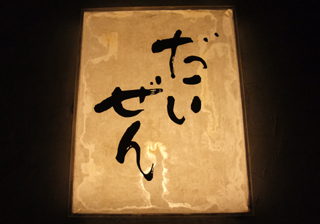 だい
ぜん